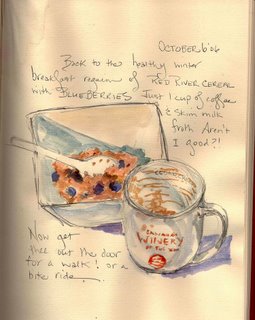 OCTOBER 6'06
Back to the healthy winter
breakfast regimen of RED RIVER CEREAL
with BLUEBERRIES Just 1 cup of coffee
& skim milk
froth Aren't
I good?!
WINERY
Now get
thee out the door
for a walk! or a
bike ride